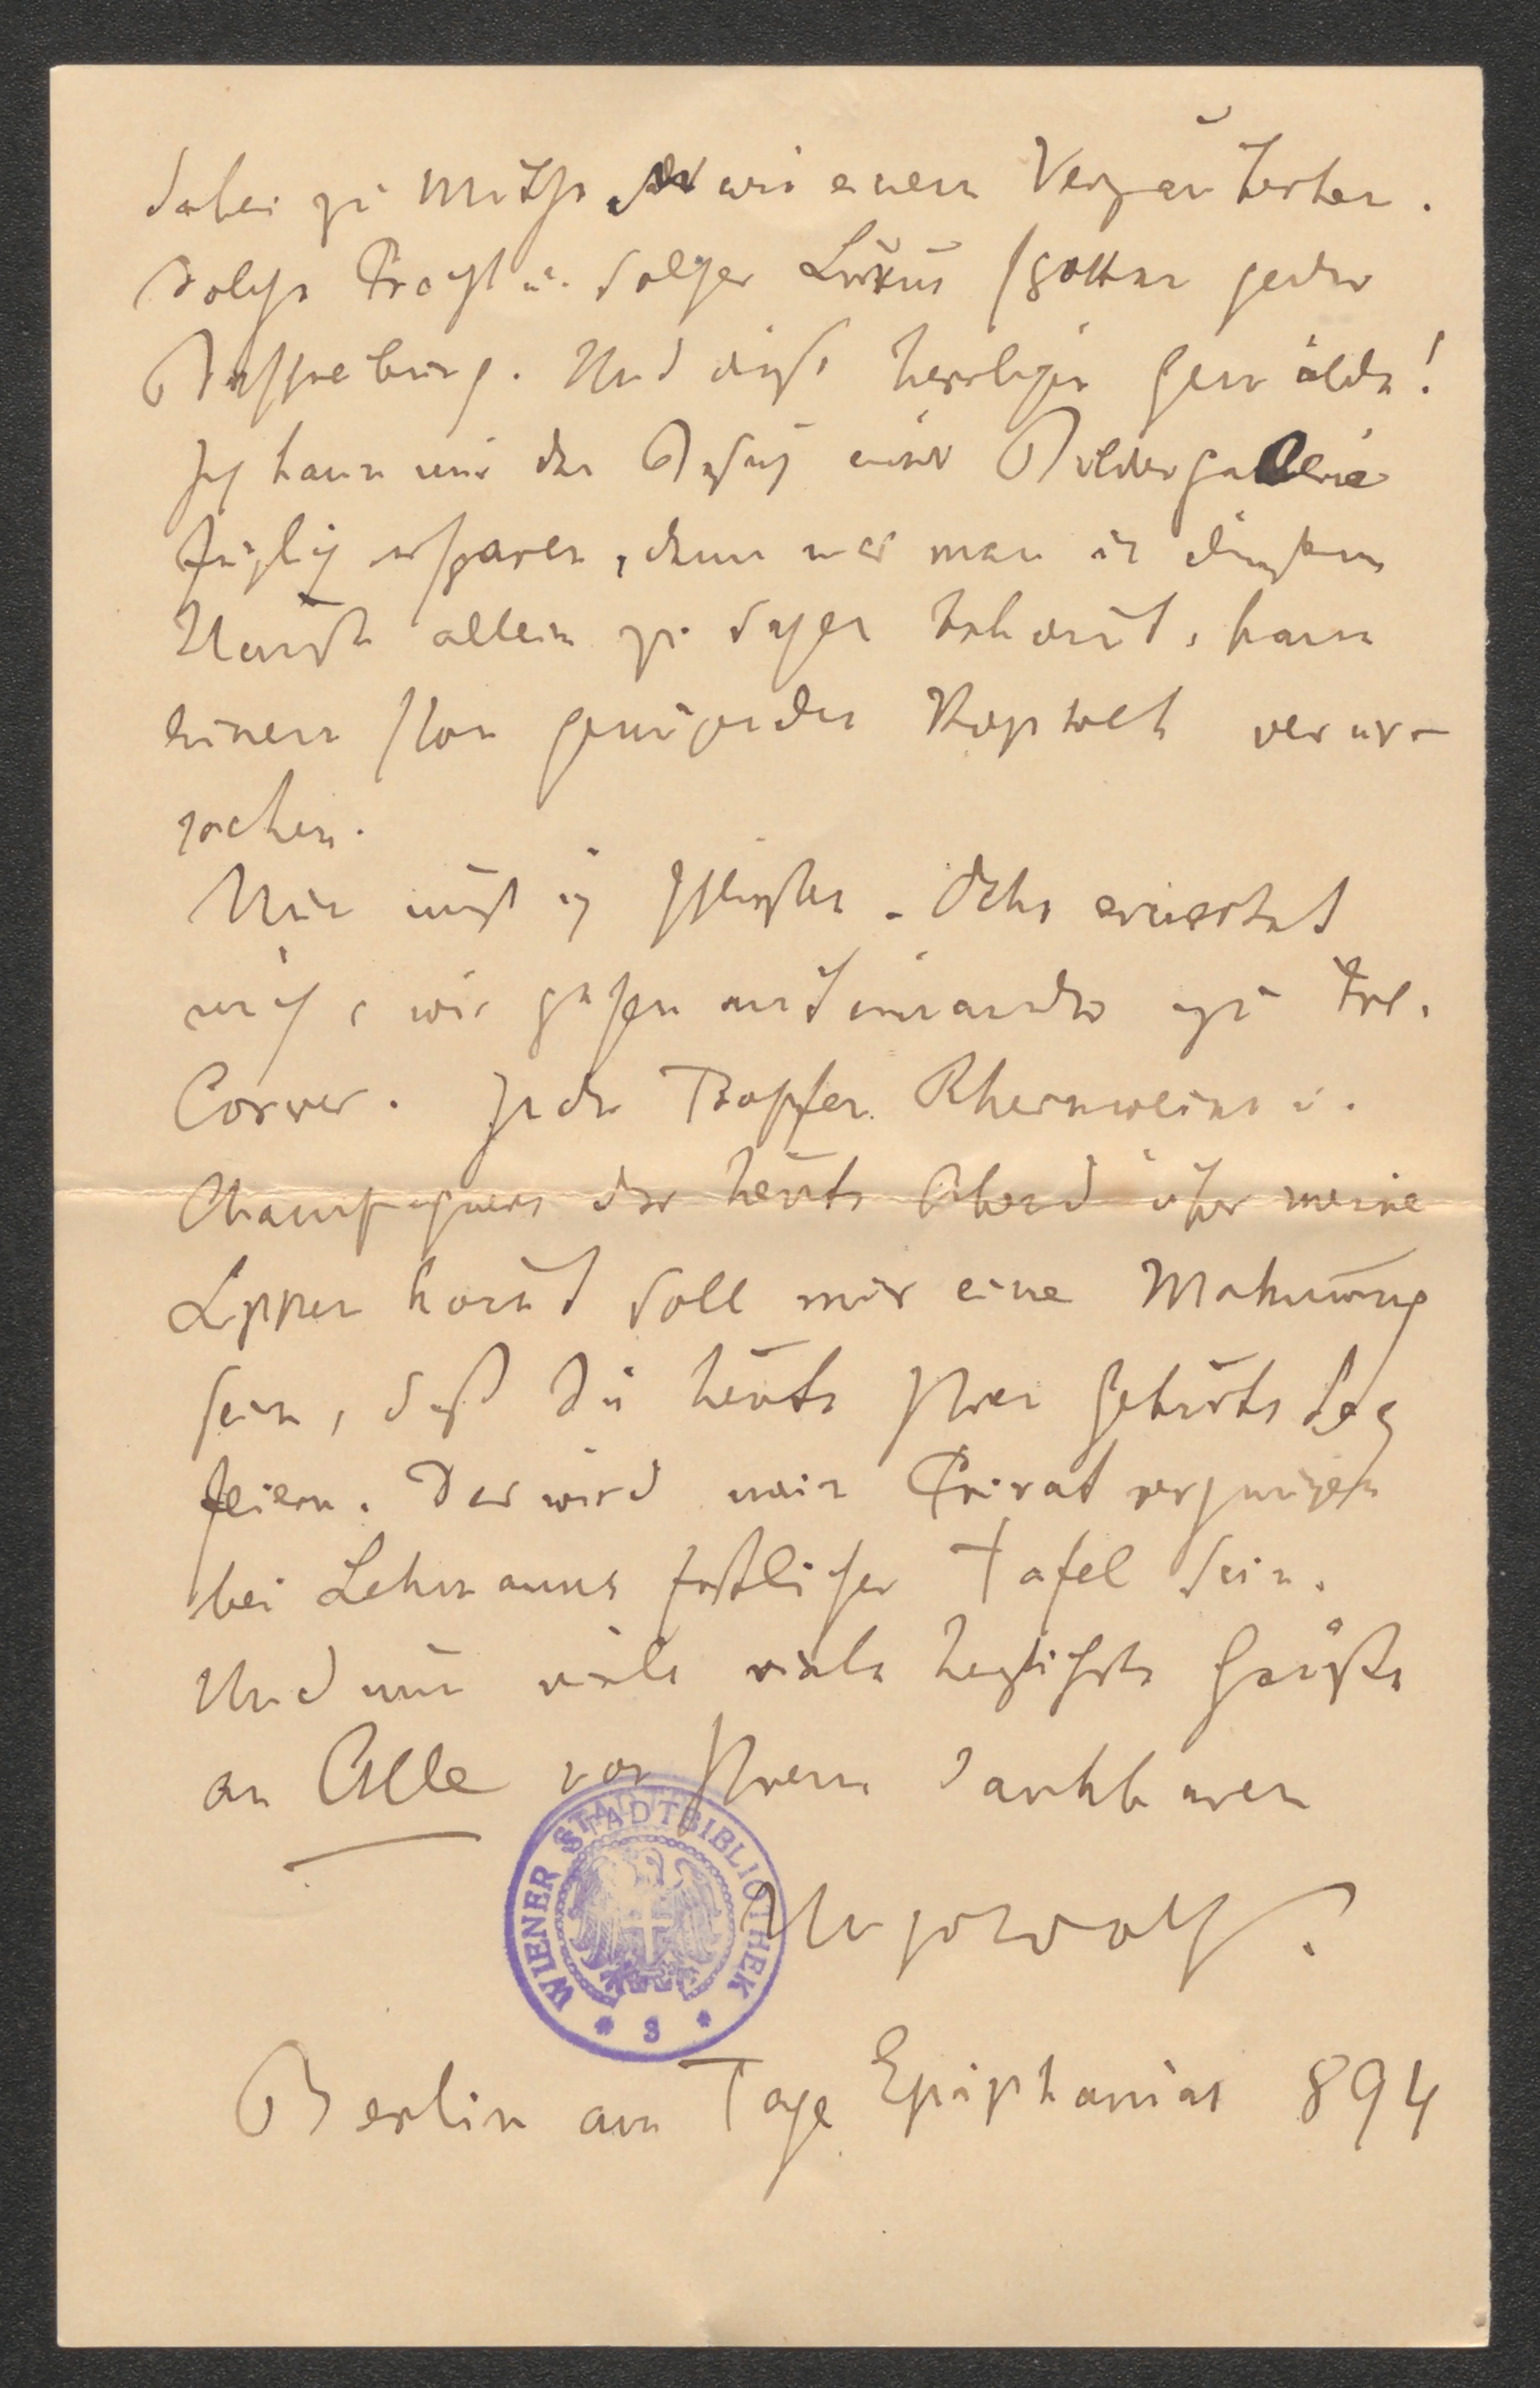 dabei zu Muthe wie einem Verzauberten.
Solche Pracht u. solcher Luxus spotten jeder
Beschreibung. Und diese herrlichen Gemälde!
Ich kann mir den Besuch einer Bildergallerie
füglich ersparen, denn was man in diesem
Hause allein zu sehen bekomt, kann
einem schon genügendes Kopfweh verur-
sachen.
Nun muß ich schließen. Detlev erwartet
mich, wir gehen miteinander zu Frl.
Corver. Jeder Tropfen Rheinweines u.
Champagners der heute Abend über meine
Lippen komt soll mir eine Mahnung
sein, daß Sie heute Ihren Geburtstag
feiern. Das wird mein Privatvergnügen
bei Lehmanns festlicher Tafel sein.
Und nun viele viele herzlichste Grüße
an Alle von Ihrem dankbaren
Hugo Wolf.
WIENER STADTBIBLIOTHEK
Berlin am Tage Epiphanias 894